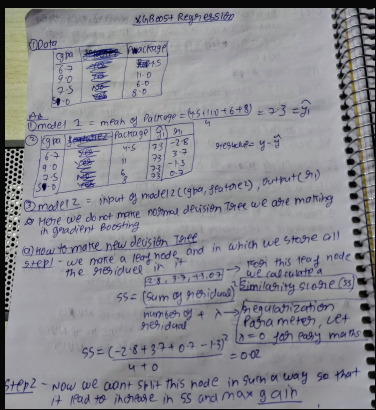 XGBoost Regression
① Data
cgpa Package
6.7 4.5
9.0 11.0
7.5 6.0
5.0 8.0
① model 1 = mean of Package = (4.5+11.0+6+8)/4 = 7.3 = ŷ₁
② cgpa package ŷ₁ r₁
6.7 4.5 7.3 -2.8
9.0 11 7.3 3.7
7.5 6 7.3 -1.3
5.0 8 7.3 0.7
residue = y-ŷ
③ model 2 = input of model 2 (cgpa, feature2), output (r₁)
Here we do not make normal decision Tree we are making
in gradient Boosting
How to make new decision Tree
Step1 - we make a leaf node, and in which we store all
the residual in it
-2.8, 3.7, -1.3, 0.7 → For this leaf node
we calculate a
Similarity Score (SS)
SS = (sum of residual)²
number of + λ → regularization
residual
Parameter, Let
λ = 0 for easy maths
SS = (-2.8+3.7+0.7-1.3)² = 0.02
4+0
Step2 - Now we want split this node in such a way so that
it lead to increase in SS and max gain